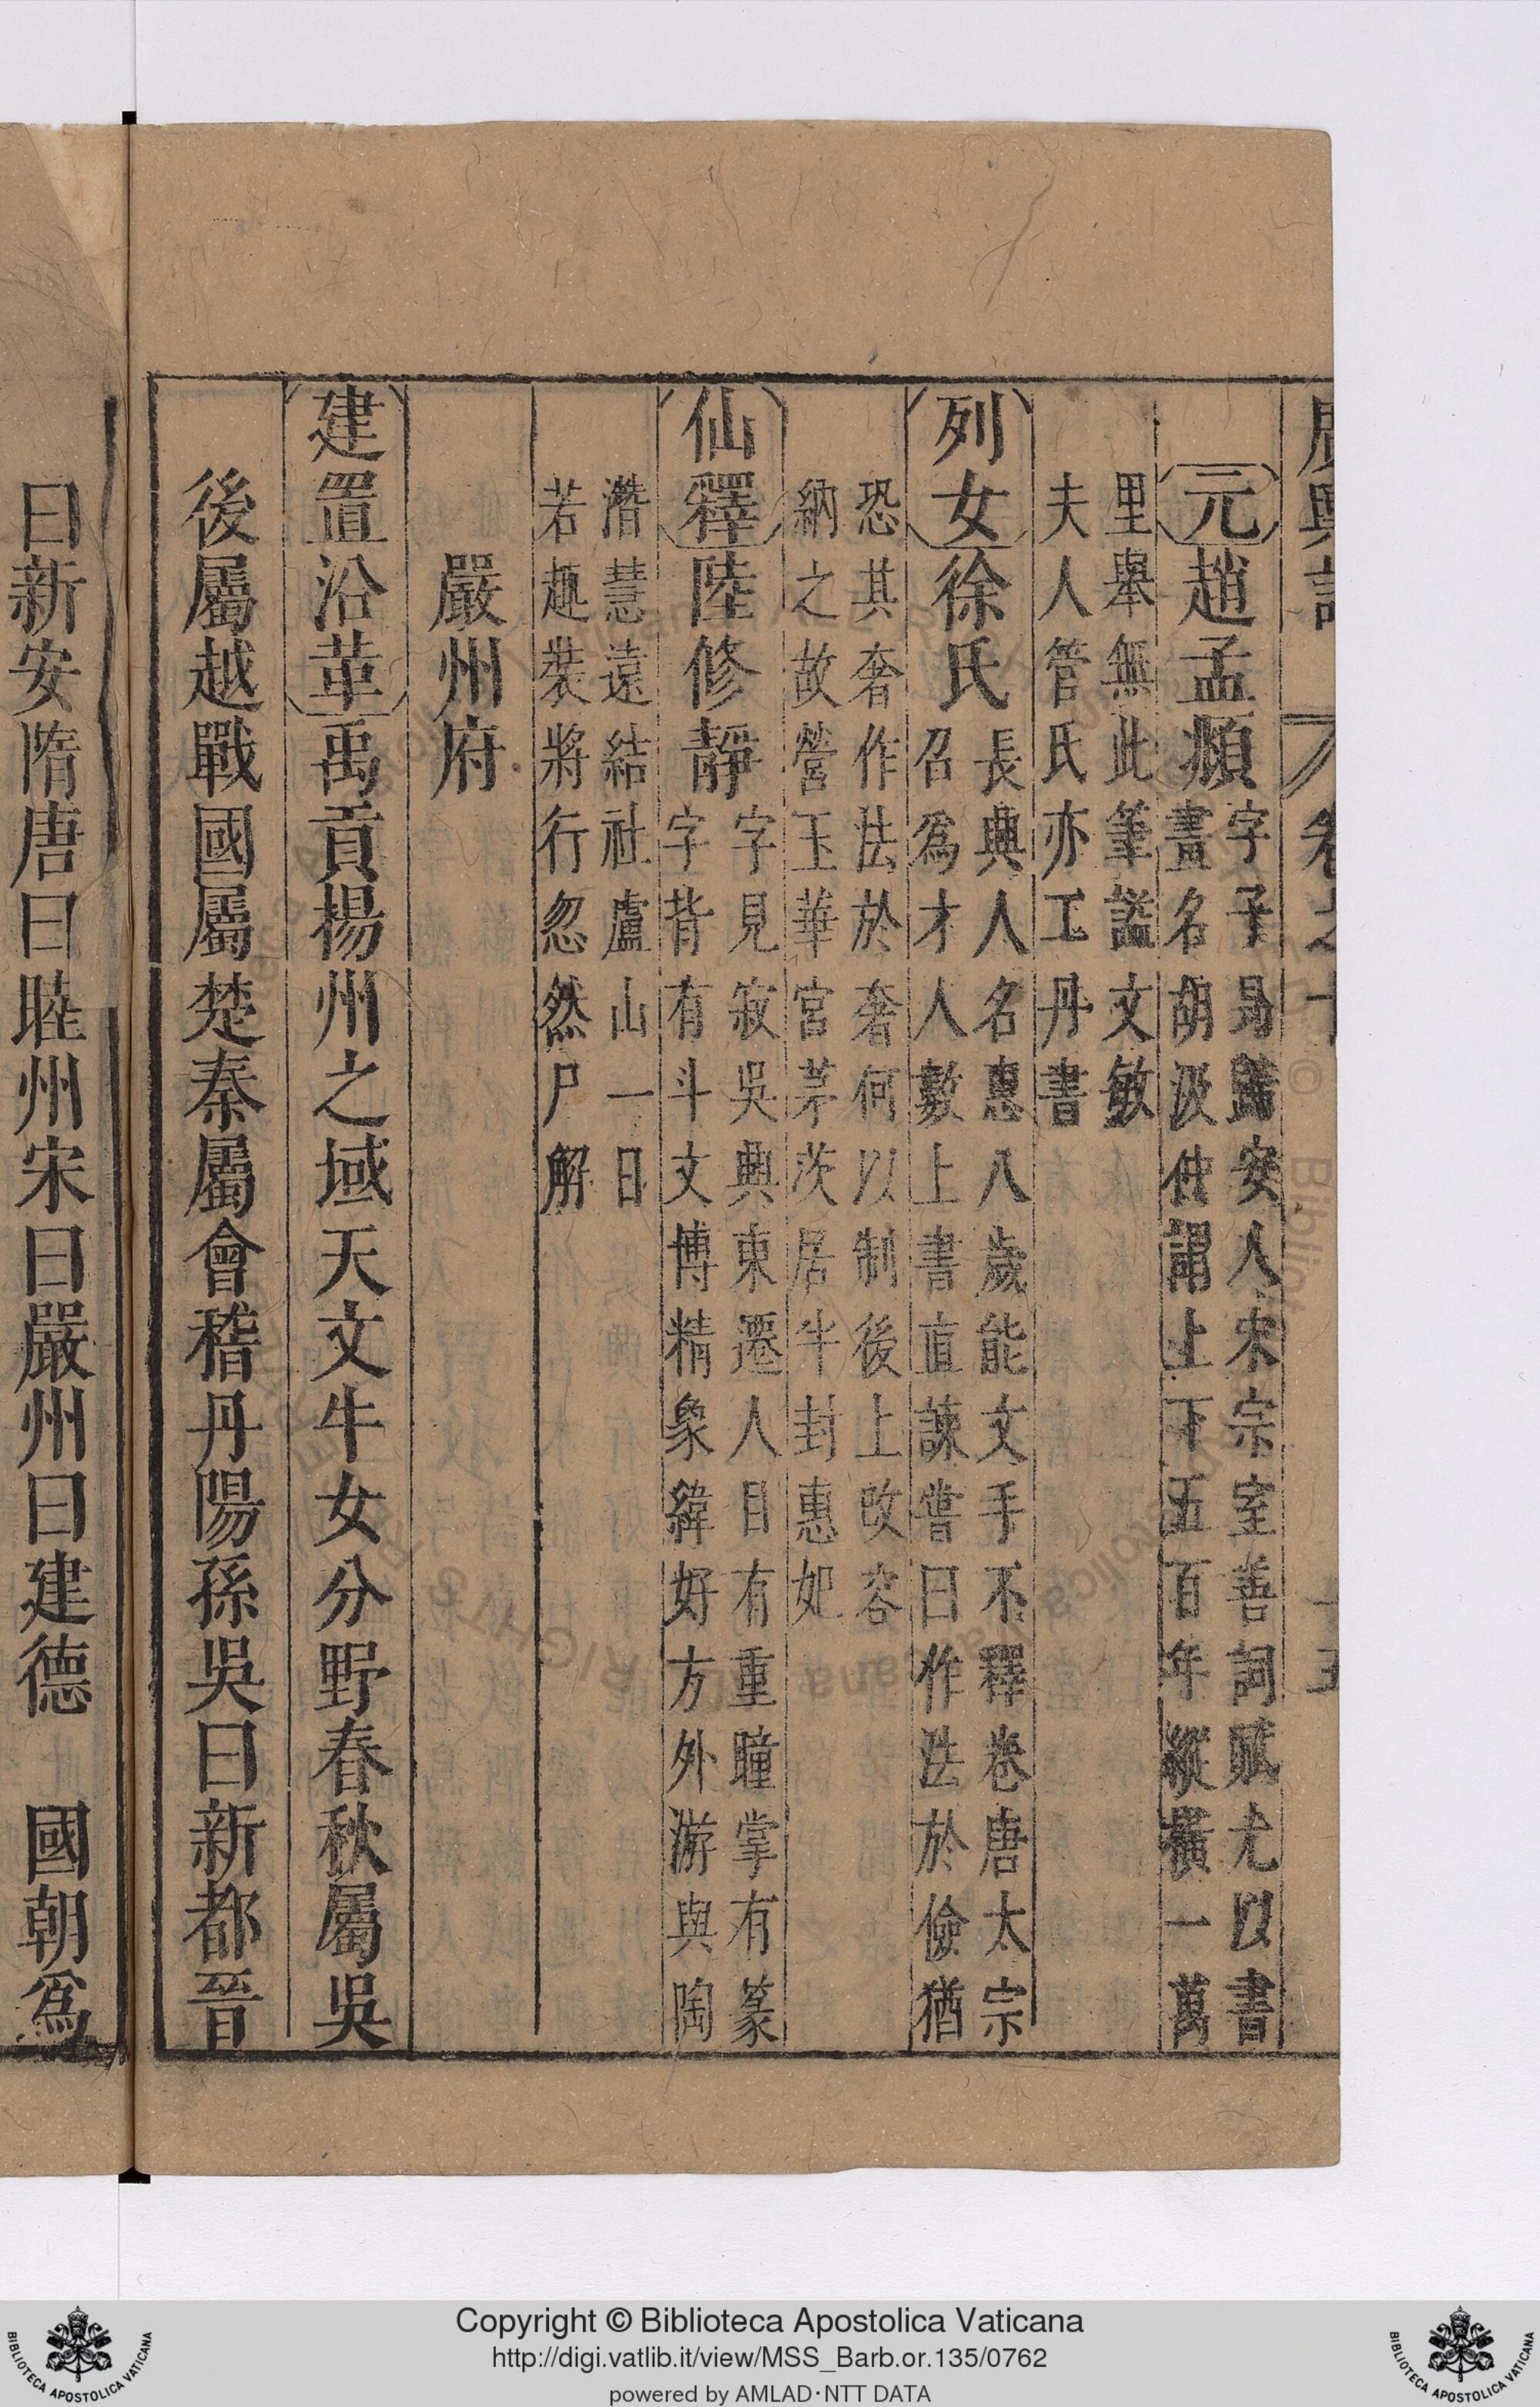 廣輿記 卷之十 十五
元趙孟頫字子昻歸安人宋宗室善詞賦尤以書
畫名胡汲仲謂上下五百年縱橫一萬
里舉無此筆諡文敏
夫人管氏亦工丹書
列女徐氏長典人名惠八歲能文手不釋卷唐太宗
召爲才人數上書直諫嘗曰作法於儉猶
恐其奢作法於奢何以制後上改容
納之故營玉華宮茅茨居半封惠妃
仙釋陸修靜字見寂吳興東遷人目有重瞳掌有篆
字背有斗文博精象緯好方外游與陶
潛慧遠結社盧山一日
若趣裝將行忽然尸解
嚴州府
建置沿革禹貢楊州之域天文牛女分野春秋屬吳
後屬越戰國屬楚秦屬會稽丹陽孫吳曰新都晉
曰新安隋唐曰睦州宋曰嚴州曰建德 國朝爲
Copyright © Biblioteca Apostolica Vaticana
http://digi.vatlib.it/view/MSS_Barb.or.135/0762
powered by AMLAD·NTT DATA
BIBLIOTECA APOSTOLICA VATICANA
BIBLIOTECA APOSTOLICA VATICANA